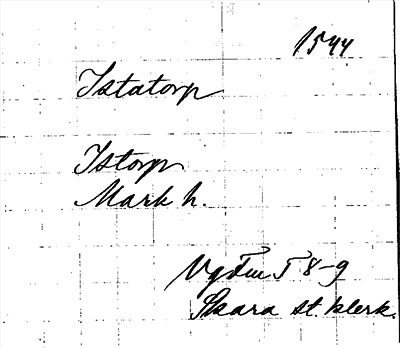 1544
Istatorp
Istorp
Mark h.
8-9
Skara st. klerk.